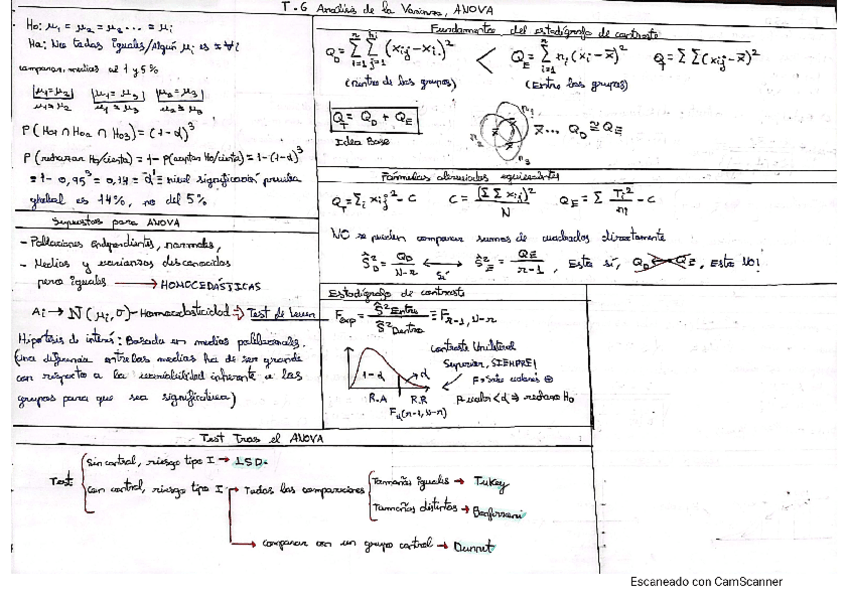 T.6 Análisis de la Varianza, ANOVA
H₀: μ₁ = μ₂ = μ₃ ... = μᵢ
Ha: No todas iguales/Algún μᵢ es ≠
comparar medias al 1 y 5%
μ₁=μ₂ μ₁=μ₃ μ₂=μ₃
μ₁≠μ₂ μ₁≠μ₃ μ₂≠μ₃
P(H₀₁ ∩ H₀₂ ∩ H₀₃) = (1-α)³
P(rechazar H₀/cierta) = 1 - P(aceptar H₀/cierta) = 1-(1-α)³
= 1 - 0,95³ = 0,14 = α' = nivel significación prueba
global es 14%, no del 5%
Supuestos para ANOVA
- Poblaciones independientes, normales,
- Medias y varianzas desconocidas
pero iguales → HOMOCEDÁSTICAS
Aᵢ → N(μᵢ, σ) - Homocedasticidad → Test de Leven
Hipótesis de interés: Basada en medias poblacionales.
(una diferencia entre las medias ha de ser grande
con respecto a la variabilidad inherente a los
grupos para que sea significativa)
Fundamentos del estadígrafo de contraste
Q_D = Σ Σ (xᵢⱼ - xᵢ.)² < Q_E = Σ nᵢ (xᵢ - x̄)² Q_T = Σ Σ (xᵢⱼ - x̄)²
(Dentro de los grupos) (Entre los grupos)
Q_T = Q_D + Q_E
Idea Base
n₁ n₂ n₃ x̄... Q_D ≅ Q_E
Fórmulas abreviadas equivalentes
Q_T = Σᵢ xᵢⱼ² - C C = (Σ Σ xᵢⱼ)² / N Q_E = Σ Tᵢ² / n - C
NO se pueden comparar sumas de cuadrados directamente
Ŝ²_D = Q_D / N-r ↔ Sí Ŝ²_E = Q_E / r-1, Esta sí, Q_D Q_E, Esta NO!
Estadígrafo de contraste
F_exp = Ŝ² Entre / Ŝ² Dentro ≡ F r-1, N-r
Contraste Unilateral
Superior, SIEMPRE!
F > Sólo valores ⊕
P.valor < α ⇒ rechazo H₀
1-α α
R.A R.R
F_α (r-1, N-r)
Test Tras el ANOVA
Test
Sin control, riesgo tipo I → LSD.
Con control, riesgo tipo I → Todas las comparaciones
Tamaños iguales → Tukey
Tamaños distintos → Bonferroni
→ comparar con un grupo control → Dunnet
Escaneado con CamScanner